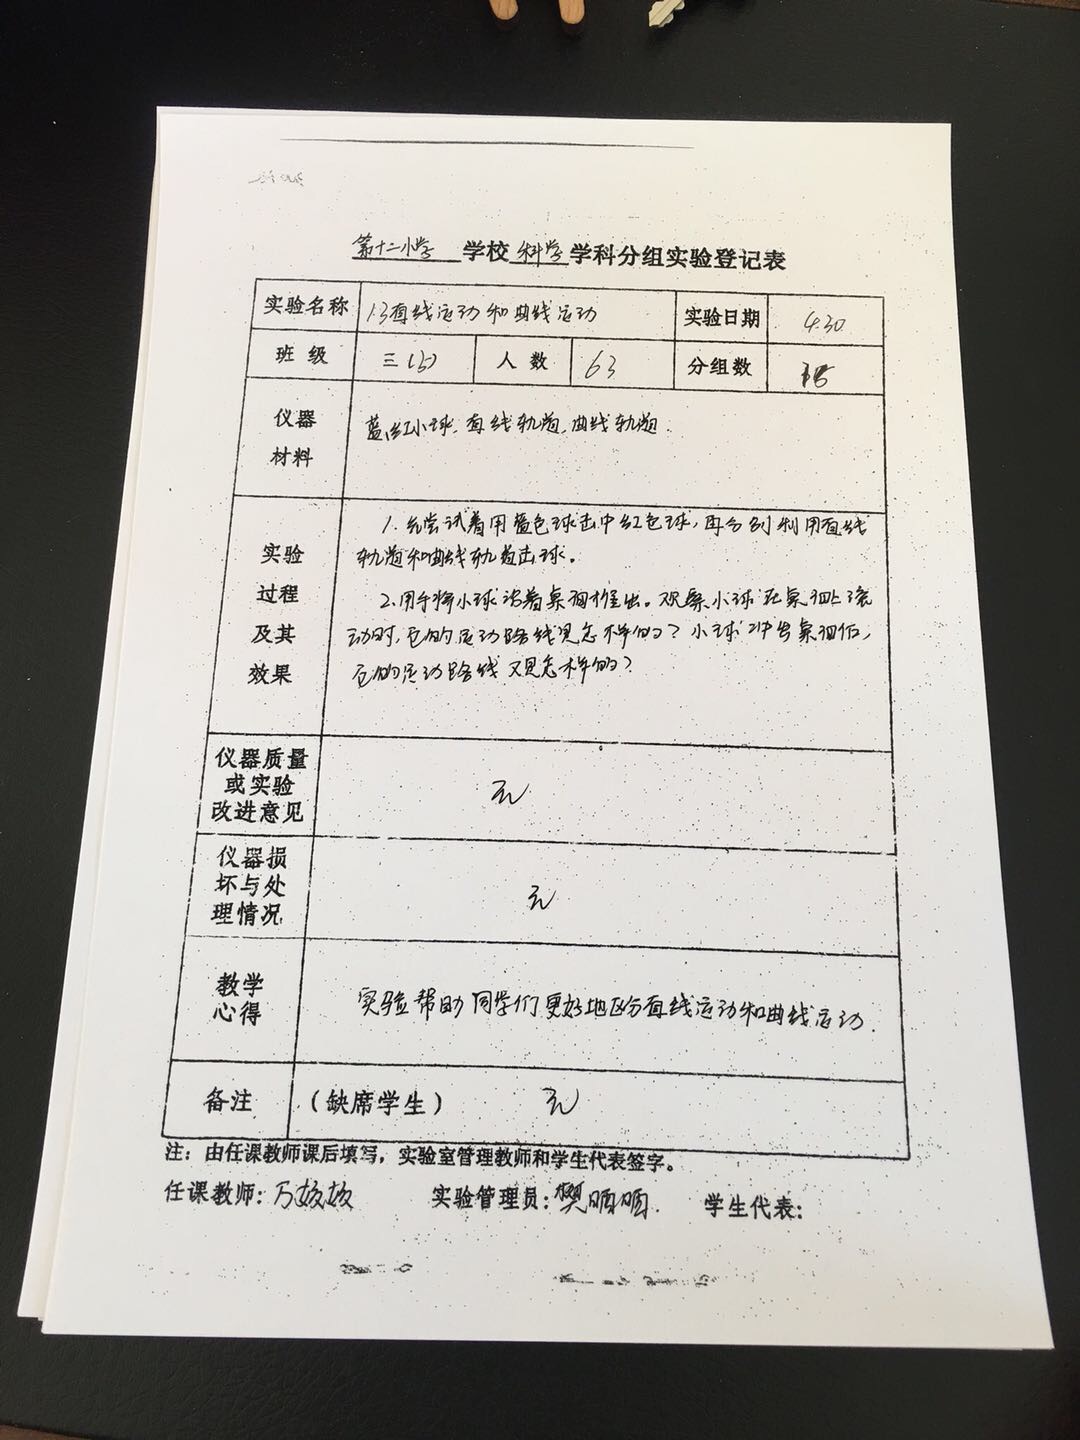 第十二小学 学校 科学 学科分组实验登记表
实验名称 1.3直线运动和曲线运动 实验日期 4.30
班 级 三(5) 人 数 63 分组数
仪器
材料
蓝、红小球、直线轨道、曲线轨道.
实验
过程
及其
效果
1.先尝试着用蓝色球击中红色球,再分别利用直线
轨道和曲线轨道击球。
2.用手将小球沿着桌面推出。观察小球在桌面上滚
动时,它的运动路线是怎样的?小球冲出桌面后,
它的运动路线又是怎样的?
仪器质量
或实验
改进意见
无
仪器损
坏与处
理情况
无
教学
心得
实验帮助同学们更好地区分直线运动和曲线运动.
备注 (缺席学生) 无
注:由任课教师课后填写,实验室管理教师和学生代表签字。
任课教师:万姣姣 实验管理员:樊 学生代表: